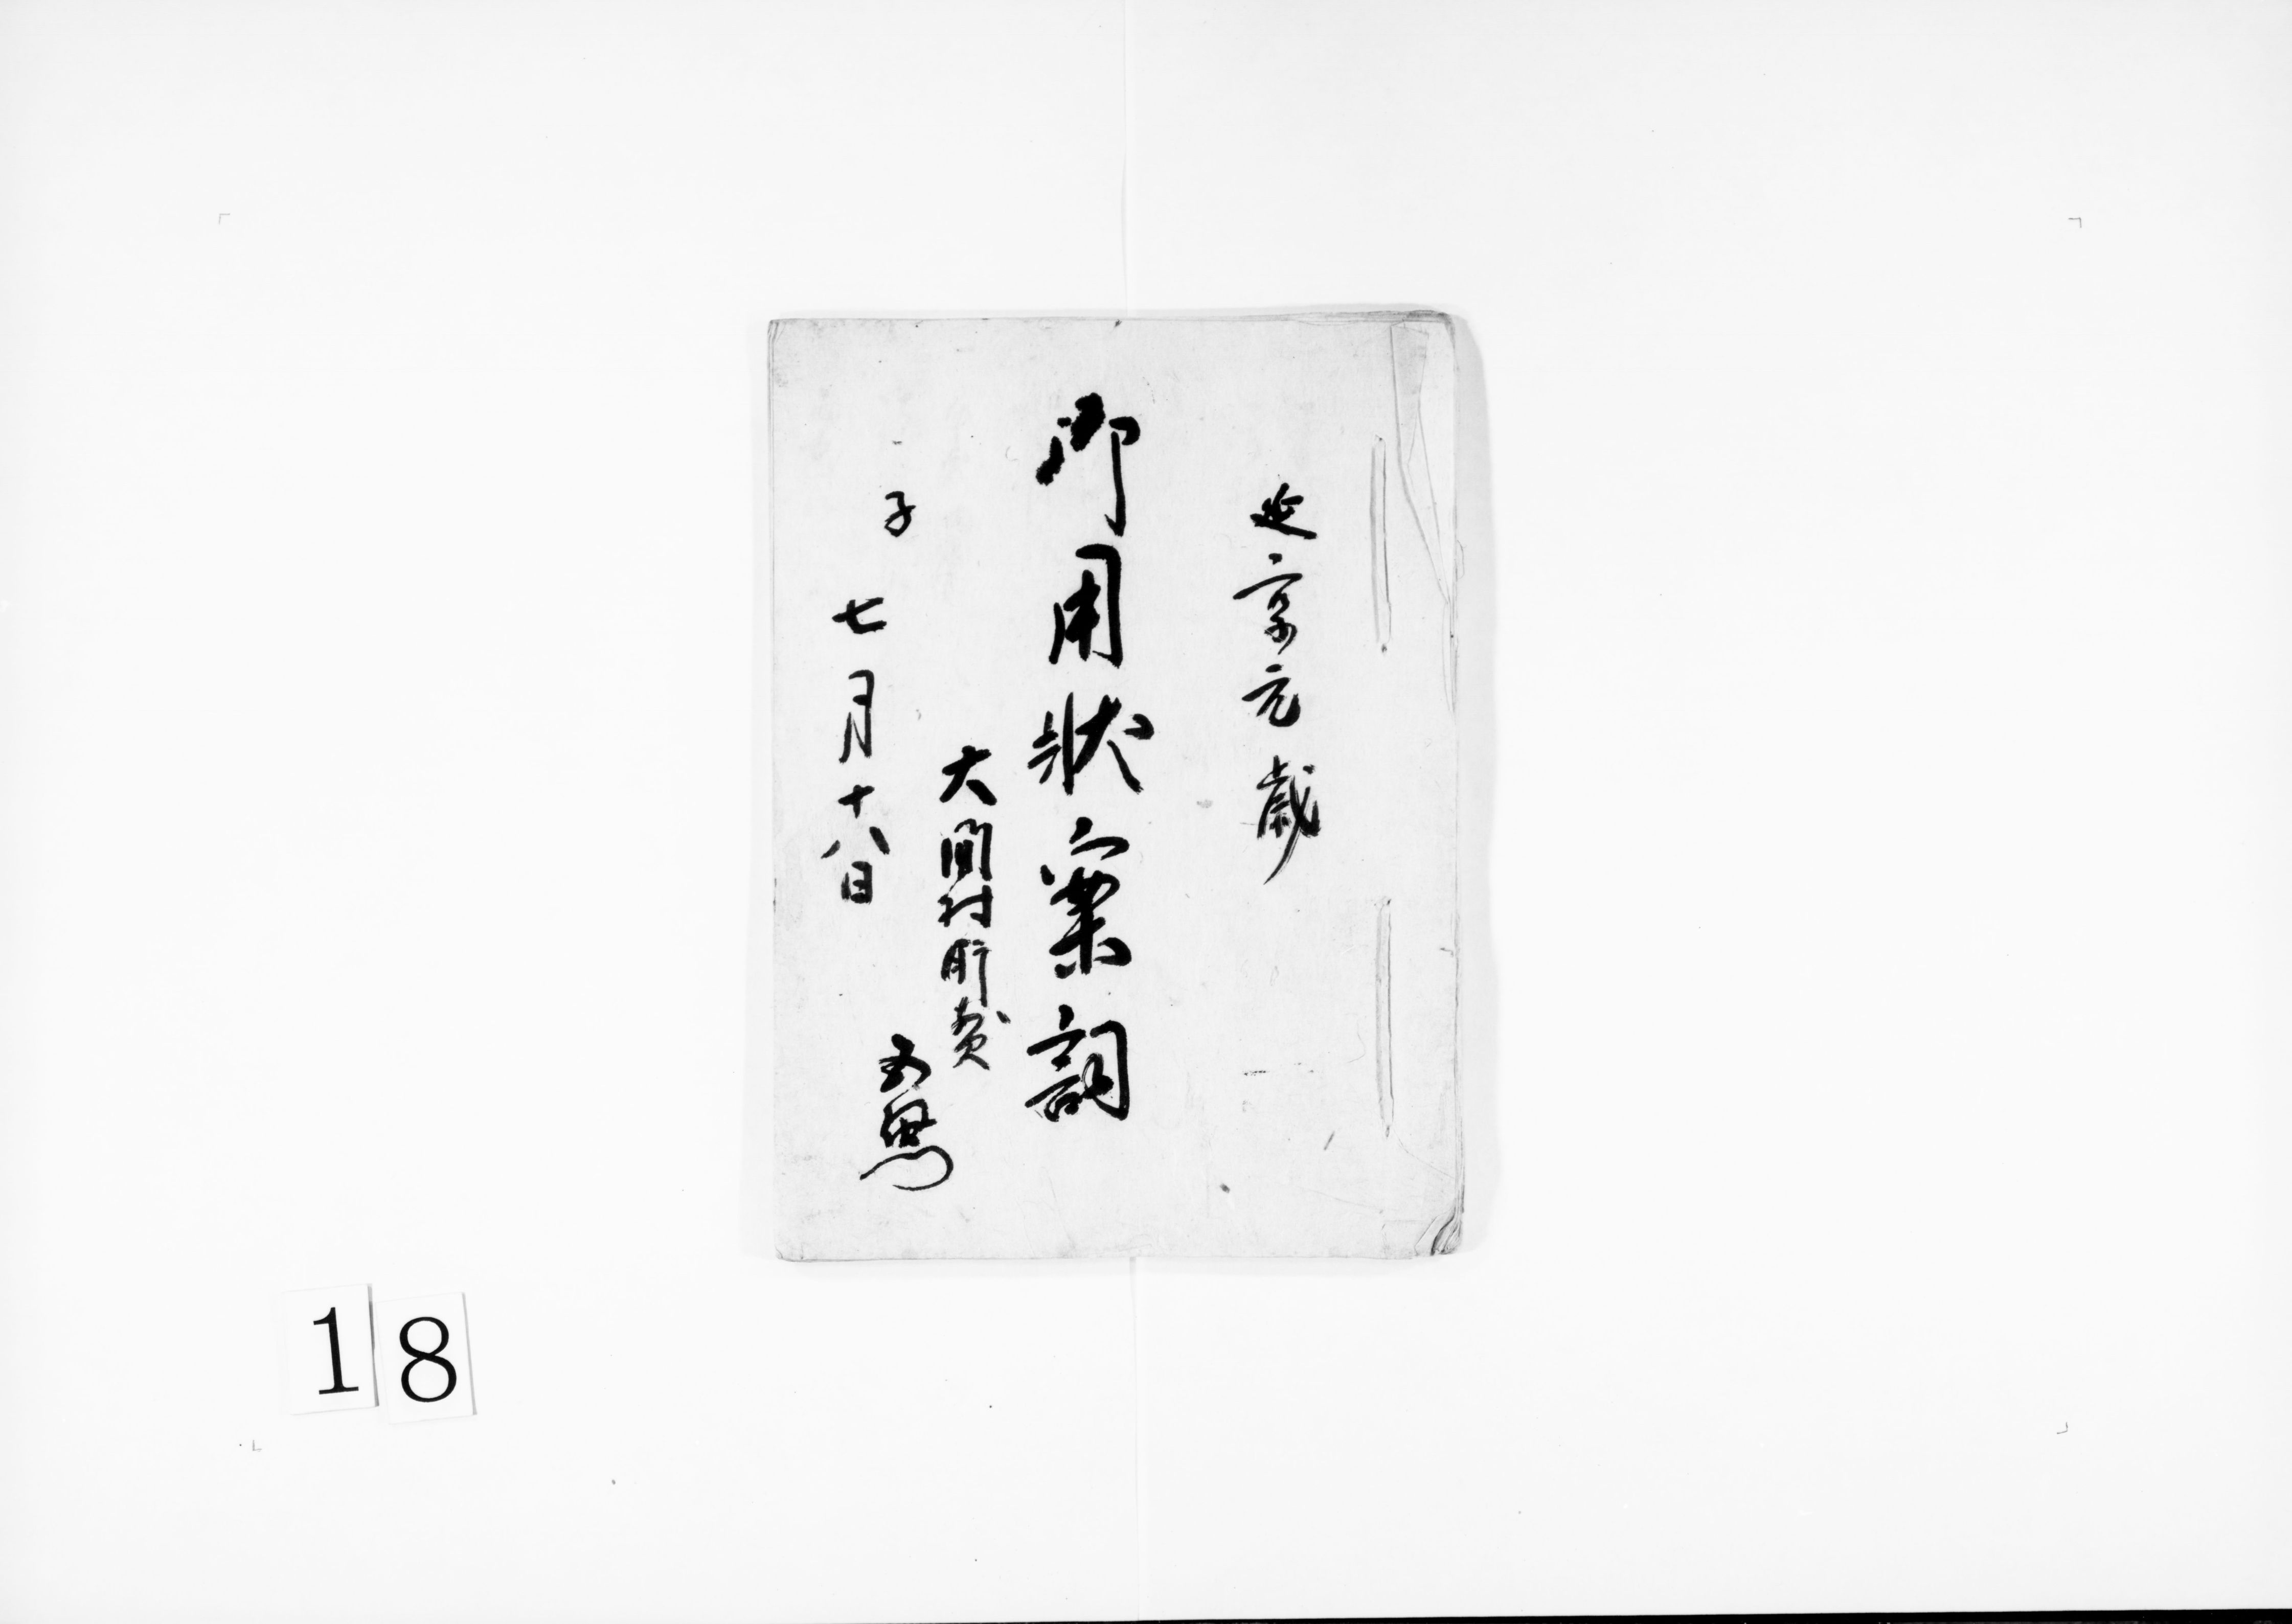 延享元歳
御用状案詞
大間村肝煎
子
七月十八日
18